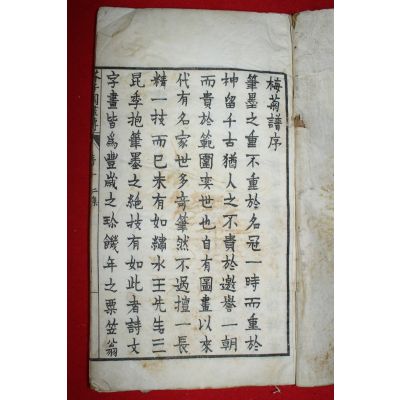 梅菊譜序
筆墨之重不重於名冠一時而重於
神留千古猶人之不貴於邀譽一朝
而貴於範圍奕世也自有圖畫以來
代有名家世多奇筆然不過擅一長
精一技而已未有如繡水王先生三
昆季抱筆墨之絶技有如此者詩文
字畫皆爲豐歲之珎饑年之粟笠翁